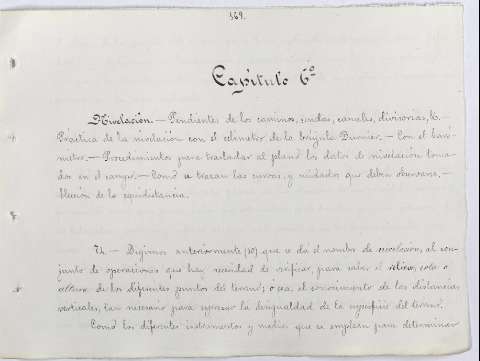 169.
Capítulo 6º
Nivelación. — Pendientes de los caminos, sendas, canales, divisorias, &. —
Práctica de la nivelación con el eclímetro de la brújula Burnier. — Con el baró-
metro. — Procedimientos para trasladar al plano los datos de nivelación toma-
dos en el campo. — Como se trazan las curvas, y cuidados que deben observarse. —
elección de la equidistancia.
— Digimos anteriormente (10) que se dá el nombre de nivelación, al con-
junto de operaciones que hay necesidad de verificar, para saber el relieve, cota o
altura de los diferentes puntos del terreno; ó sea el conocimiento de las distancias
verticales, tan necesario para expresar la desigualdad de la superficie del terreno.
Como los diferentes instrumentos y medios que se emplean para determinar